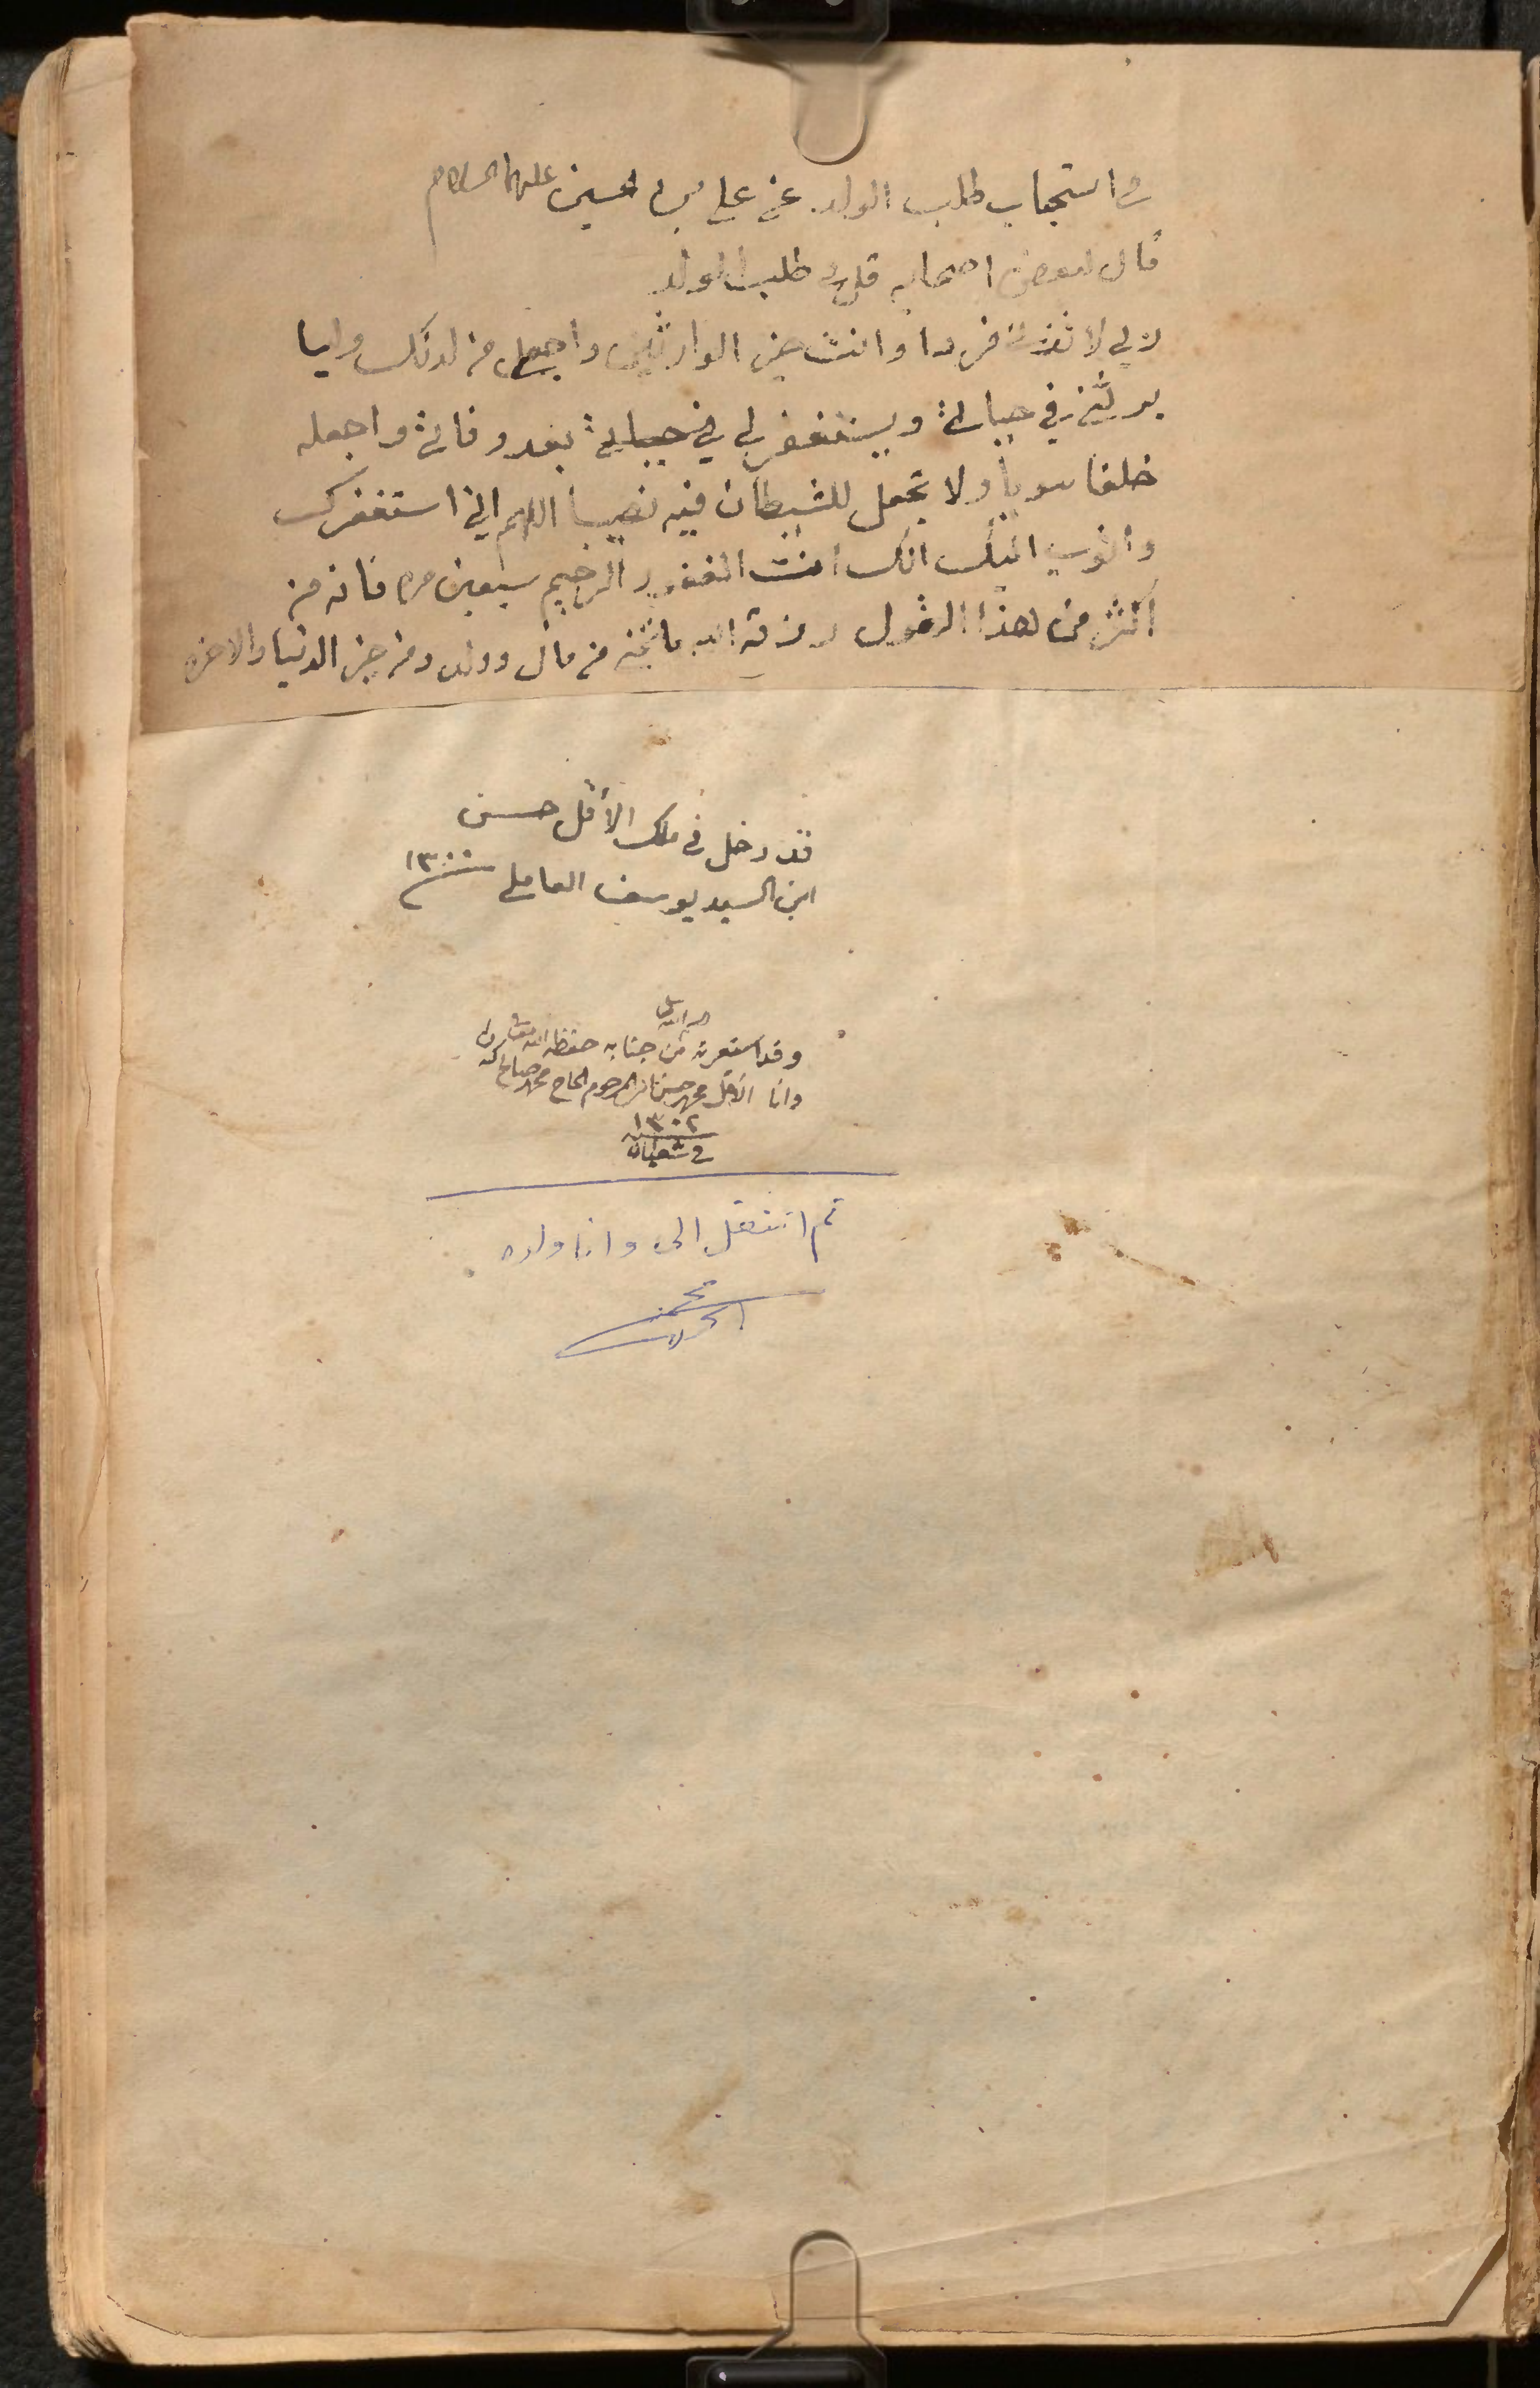 في استجاب طلب الولد عن علي بن الحسين عليهما السلام
قال لبعض اصحابه قل في طلب الولد
رب لا تذرني فردا وانت خير الوارثين واجعل من لدنك وليا
يرثني في حياتي ويستغفر لي في حياتي بعد وفاتي واجعله
خلقا سويا ولا تجعل للشيطان فيه نصيبا اللهم اني استغفرك
واتوب اليك انك انت الغفور الرحيم سبعين مره فانه من
اكثر من هذا القول رزقه الله ما تمنى من مال وولد ومن خير الدنيا والاخره
قد دخل في ملك الأقل حسن
ابن السيد يوسف العاملي سنة ١٣٠٠
وقد استعرته من جنابه حفظه الله
وانا الاقل محمد حسن المرحوم الحاج محمد صالح
١٣٠٢
في شعبان
ثم انتقل الى وانا ولده